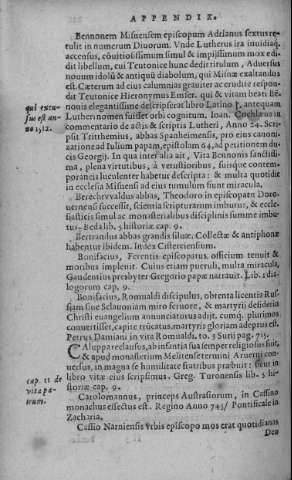 APPENDIX.
Bennonem Misnensem episcopum Adrianus sextus re-
tulit in numerum Diuorum. Vnde Lutherus ira inuidiaq́;
accensus, conuitiosissimum simul & impijssimum mox edi-
dit libellum, cui Teutonice hunc dedit titulum, Aduersus
nouum idolū & antiquū diabolum, qui Misnæ exaltandus
est. Cæterum ad eius calumnias grauiter ac erudite respon-
dit Teutonice Hieronymus Emser. qui & vitam beati Be-
qui excu-
nonis elegantissime descripserat libro Latino, antequam
sus est an-
Lutheri nomen fuisset orbi cognitum. Ioan. Cochlæus in
no 1512.
commentario de actis & scriptis Lutheri, Anno 24. Scri-
psit Trithemius, abbas Spanhemensis, pro eius canoni-
zatione ad Iulium papam, epistolam 64, ad petitionem du-
cis Georgij. In qua inter alia ait, Vita Bennonis sanctissi-
ma, plena virtutibus, à vetustioribus, suisque contem-
poraneis luculenter habetur descripta: & multa quotidie
in ecclesia Misnensi ad eius tumulum siunt miracula.
Berechtvaldus abbas, Theodoro in episcopatu Doro-
uernensi successit, scientia scripturarum imbutus, & eccle-
siasticis simul ac monasterialibus disciplinis summe imbu-
tus. Beda lib. 5 historiæ cap. 9.
Bertrandus abbas grandis siluæ. Collectæ & antiphonæ
habentur ibidem. Index Cisterciensium.
Bonifacius, Ferentis episcopatus, officium tenuit &
moribus impleuit. Cuius etiam pueruli, multa miracula,
Gaudentius presbyter Gregorio papæ narrauit. Lib. 1 dia-
logorum cap. 9.
Bonifacius, Romualdi discipulus, obtenta licentia Rus-
siam siue Sclauoniam miro feruore, & martyrij desiderio
Christi euangelium annunciaturus adijt. cumq́; plurimos
conuertisset, capite trūcatus, martyrij gloriam adeptus est.
Petrus Damiani in vita Romualdi. to. 5 Surij pag. 715.
Caluppa reclausus, ab infantia sua semper religiosus fuit,
& apud monasterium Melitense termini Aruerni con-
uersus, in magna se humilitate fratribus præbuit: sicut in
cap. 11 de
libro vitæ eius scripsimus. Greg. Turonensis lib. 5 hi-
vita pa-
storiæ cap. 9.
trum.
Carolomannus, princeps Austrasiorum, in Cassino
monachus effectus est. Regino Anno 745/ Pontificale in
Zacharia.
Cassio Narniensis vrbis episcopo mos erat quotidianas
Deo